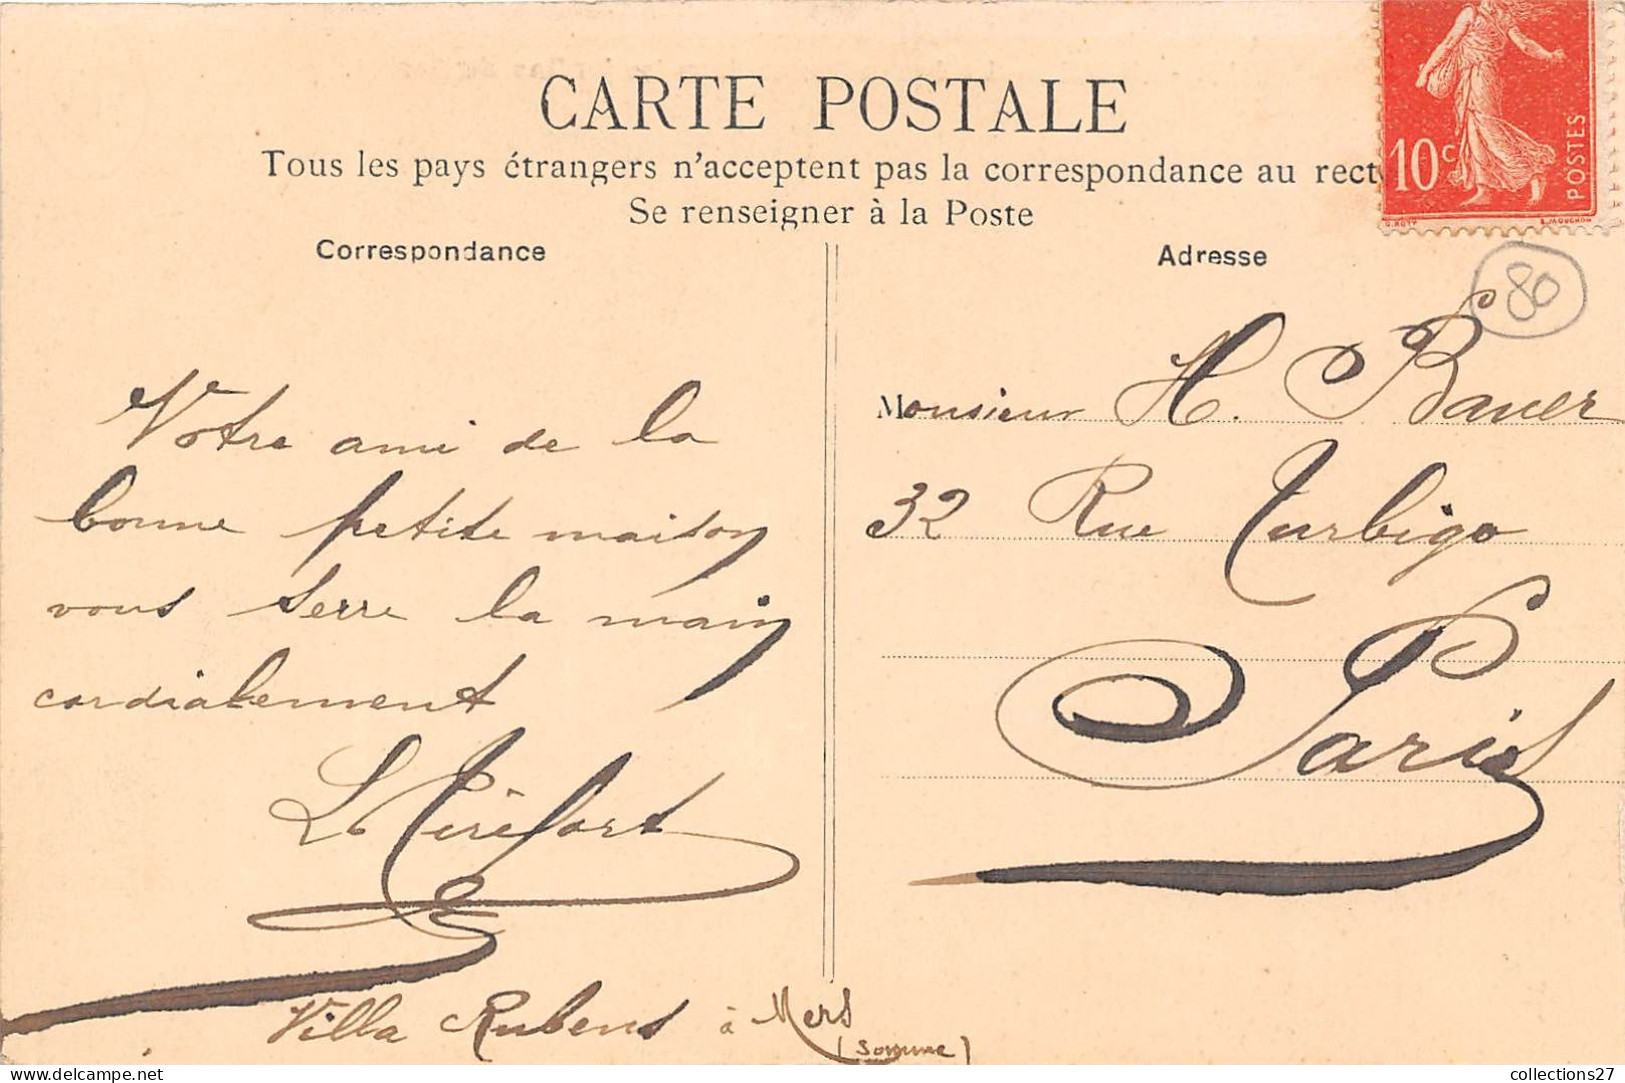 CARTE POSTALE
Tous les pays étrangers n'acceptent pas la correspondance au recto
Se renseigner à la Poste
Correspondance
Votre ami de la
bonne petite maison
vous serre la main
cordialement
L Tirefort
Villa Rubens à Mers
(Somme)
Adresse
Monsieur H. Bauer
32 Rue Turbigo
Paris
10c
POSTES
O. ROTY
L. MOUCHON
80
collections27